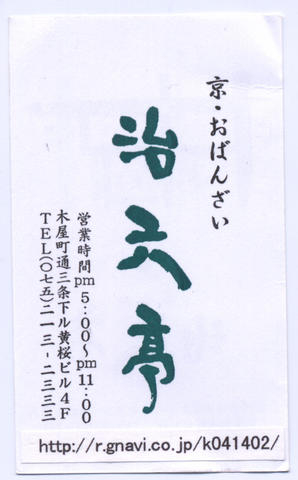 京・おばんざい
治六亭
営業時間pm5:00～pm11:00
木屋町通三条下ル黄桜ビル4F
TEL(〇七五)二一三-二三三三
http://r.gnavi.co.jp/k041402/